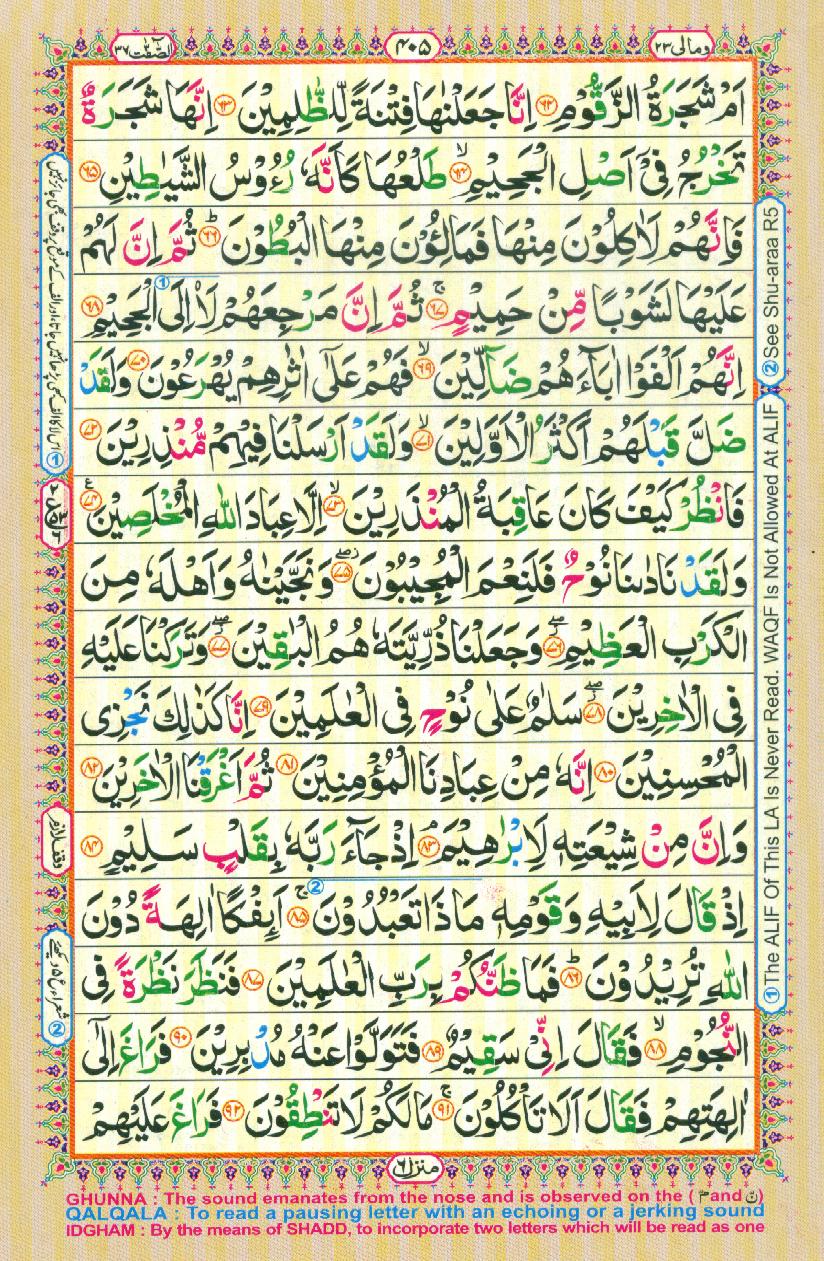 وما لی ۲۳
۴۰۵
الصّٰفّٰت ۳۷
اَمۡ شَجَرَةُ الزَّقُّوۡمِ ﴿۶۲﴾ اِنَّا جَعَلۡنٰهَا فِتۡنَةً لِّلظّٰلِمِيۡنَ ﴿۶۳﴾ اِنَّهَا شَجَرَةٌ
تَخۡرُجُ فِىۡۤ اَصۡلِ الۡجَحِيۡمِۙ ﴿۶۴﴾ طَلۡعُهَا كَاَنَّهٗ رُءُوۡسُ الشَّيٰطِيۡنِ ﴿۶۵﴾
فَاِنَّهُمۡ لَاٰكِلُوۡنَ مِنۡهَا فَمَالِـُٔوۡنَ مِنۡهَا الۡبُطُوۡنَؕ ﴿۶۶﴾ ثُمَّ اِنَّ لَهُمۡ
عَلَيۡهَا لَشَوۡبًا مِّنۡ حَمِيۡمٍۚ ﴿۶۷﴾ ثُمَّ اِنَّ مَرۡجِعَهُمۡ لَا۟اِلَى الۡجَحِيۡمِ ﴿۶۸﴾
اِنَّهُمۡ اَلۡفَوۡا اٰبَآءَهُمۡ ضَآلِّيۡنَۙ ﴿۶۹﴾ فَهُمۡ عَلٰٓى اٰثٰرِهِمۡ يُهۡرَعُوۡنَ ﴿۷۰﴾ وَلَقَدۡ
ضَلَّ قَبۡلَهُمۡ اَكۡثَرُ الۡاَوَّلِيۡنَۙ ﴿۷۱﴾ وَلَقَدۡ اَرۡسَلۡنَا فِيۡهِمۡ مُّنۡذِرِيۡنَ ﴿۷۲﴾
فَانۡظُرۡ كَيۡفَ كَانَ عَاقِبَةُ الۡمُنۡذَرِيۡنَۙ ﴿۷۳﴾ اِلَّا عِبَادَ اللّٰهِ الۡمُخۡلَصِيۡنَ ﴿۷۴﴾
وَلَقَدۡ نَادٰٮنَا نُوۡحٌ فَلَنِعۡمَ الۡمُجِيۡبُوۡنَ ﴿۷۵﴾ وَنَجَّيۡنٰهُ وَاَهۡلَهٗ مِنَ
الۡكَرۡبِ الۡعَظِيۡمِ ﴿۷۶﴾ وَجَعَلۡنَا ذُرِّيَّتَهٗ هُمُ الۡبٰقِيۡنَ ﴿۷۷﴾ وَتَرَكۡنَا عَلَيۡهِ
فِى الۡاٰخِرِيۡنَ ﴿۷۸﴾ سَلٰمٌ عَلٰى نُوۡحٍ فِى الۡعٰلَمِيۡنَ ﴿۷۹﴾ اِنَّا كَذٰلِكَ نَجۡزِى
الۡمُحۡسِنِيۡنَ ﴿۸۰﴾ اِنَّهٗ مِنۡ عِبَادِنَا الۡمُؤۡمِنِيۡنَ ﴿۸۱﴾ ثُمَّ اَغۡرَقۡنَا الۡاٰخَرِيۡنَ ﴿۸۲﴾
وَاِنَّ مِنۡ شِيۡعَتِهٖ لَاِبۡرٰهِيۡمَۘ ﴿۸۳﴾ اِذۡ جَآءَ رَبَّهٗ بِقَلۡبٍ سَلِيۡمٍ ﴿۸۴﴾
اِذۡ قَالَ لِاَبِيۡهِ وَقَوۡمِهٖ مَاذَا تَعۡبُدُوۡنَۚ ﴿۸۵﴾ اَٮِٕفۡكًا اٰلِهَةً دُوۡنَ
اللّٰهِ تُرِيۡدُوۡنَؕ ﴿۸۶﴾ فَمَا ظَنُّكُمۡ بِرَبِّ الۡعٰلَمِيۡنَ ﴿۸۷﴾ فَنَظَرَ نَظۡرَةً فِى
النُّجُوۡمِۙ ﴿۸۸﴾ فَقَالَ اِنِّىۡ سَقِيۡمٌ ﴿۸۹﴾ فَتَوَلَّوۡا عَنۡهُ مُدۡبِرِيۡنَ ﴿۹۰﴾ فَرَاغَ اِلٰٓى
اٰلِهَتِهِمۡ فَقَالَ اَلَا تَاۡكُلُوۡنَۚ ﴿۹۱﴾ مَا لَكُمۡ لَا تَنۡطِقُوۡنَ ﴿۹۲﴾ فَرَاغَ عَلَيۡهِمۡ
منزل ۶
① The ALIF Of This LA Is Never Read. WAQF Is Not Allowed At ALIF
② See Shu-araa R5
وقف لازم
GHUNNA : The sound emanates from the nose and is observed on the ( مّ and نّ )
QALQALA : To read a pausing letter with an echoing or a jerking sound
IDGHAM : By the means of SHADD, to incorporate two letters which will be read as one